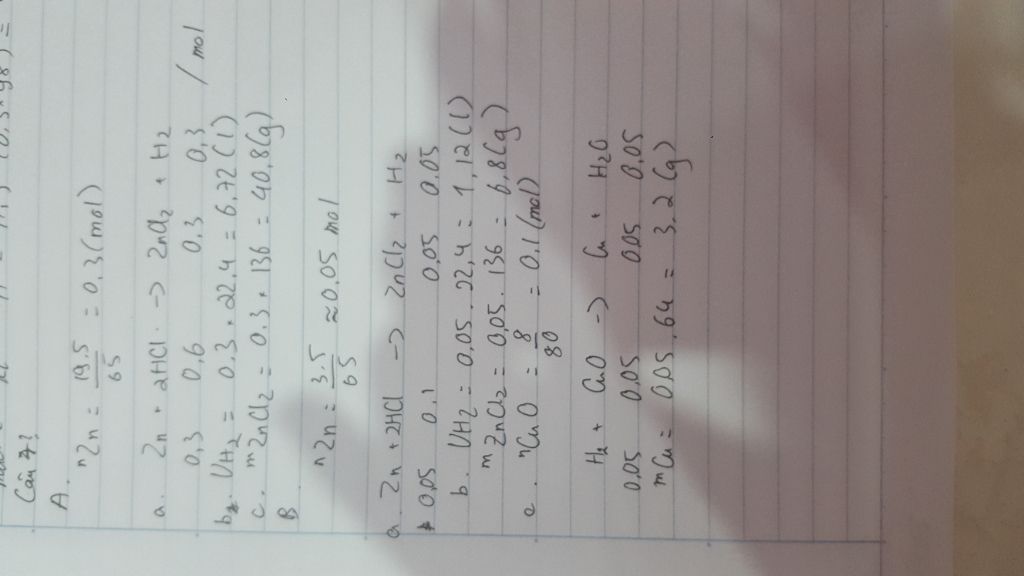 Câu 7:
A.
nZn = 19.5/65 = 0.3 (mol)
a. Zn + 2HCl -> ZnCl2 + H2
0,3 0,6 0,3 0,3 / mol
b. VH2 = 0.3 . 22.4 = 6.72 (l)
c. mZnCl2 = 0.3 . 136 = 40.8 (g)
B
nZn = 3.5/65 ≈ 0.05 mol
a. Zn + 2HCl -> ZnCl2 + H2
0.05 0.1 0.05 0.05
b. VH2 = 0.05 . 22,4 = 1,12 (l)
mZnCl2 = 0,05 . 136 = 6.8 (g)
c. nCuO = 8/80 = 0.1 (mol)
H2 + CuO -> Cu + H2O
0.05 0.05 0.05 0.05
mCu = 0,05 . 64 = 3.2 (g)